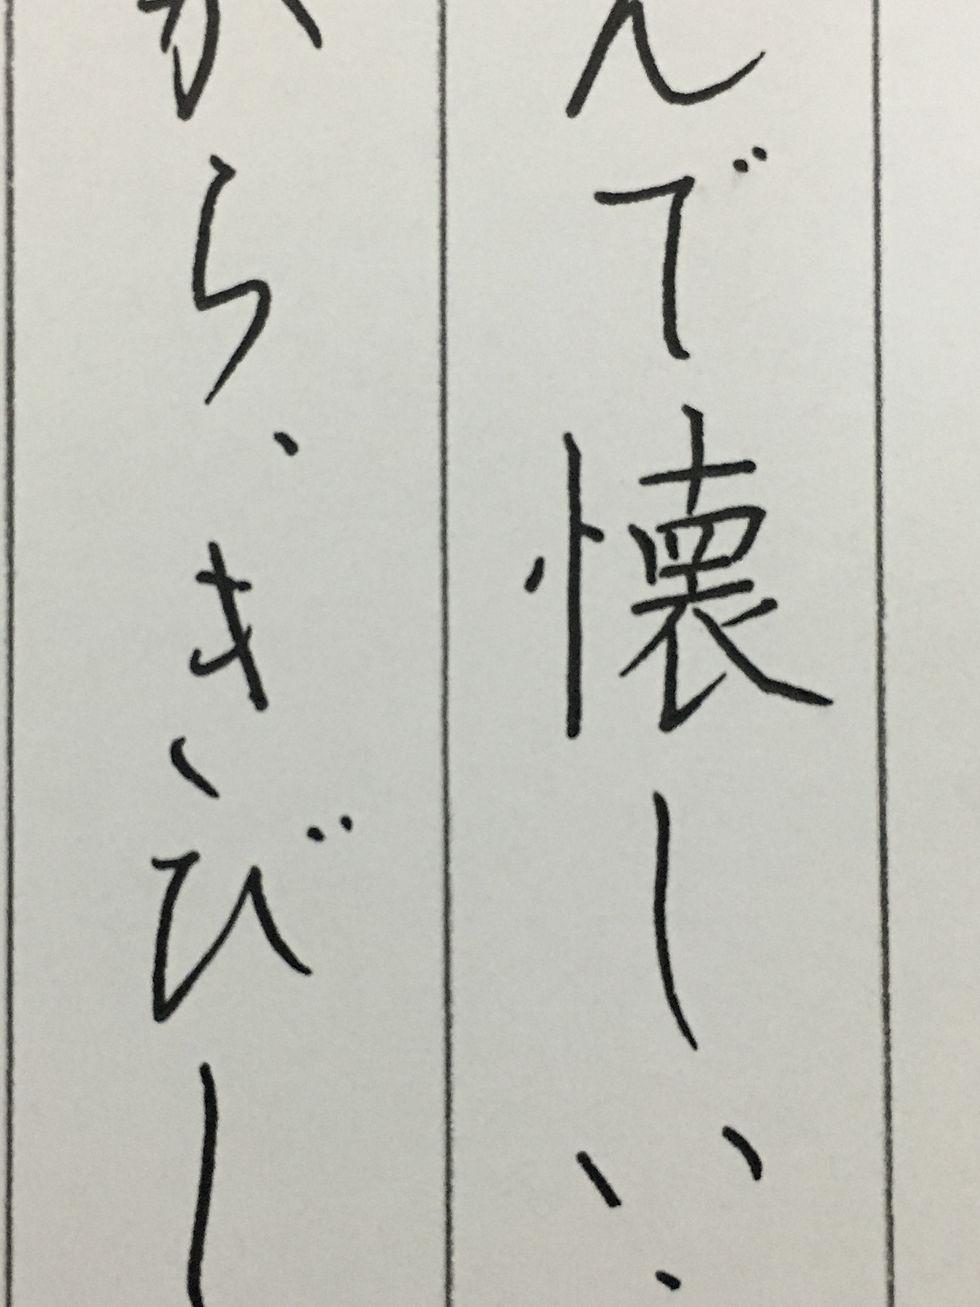 んで懐しい
から、きびし